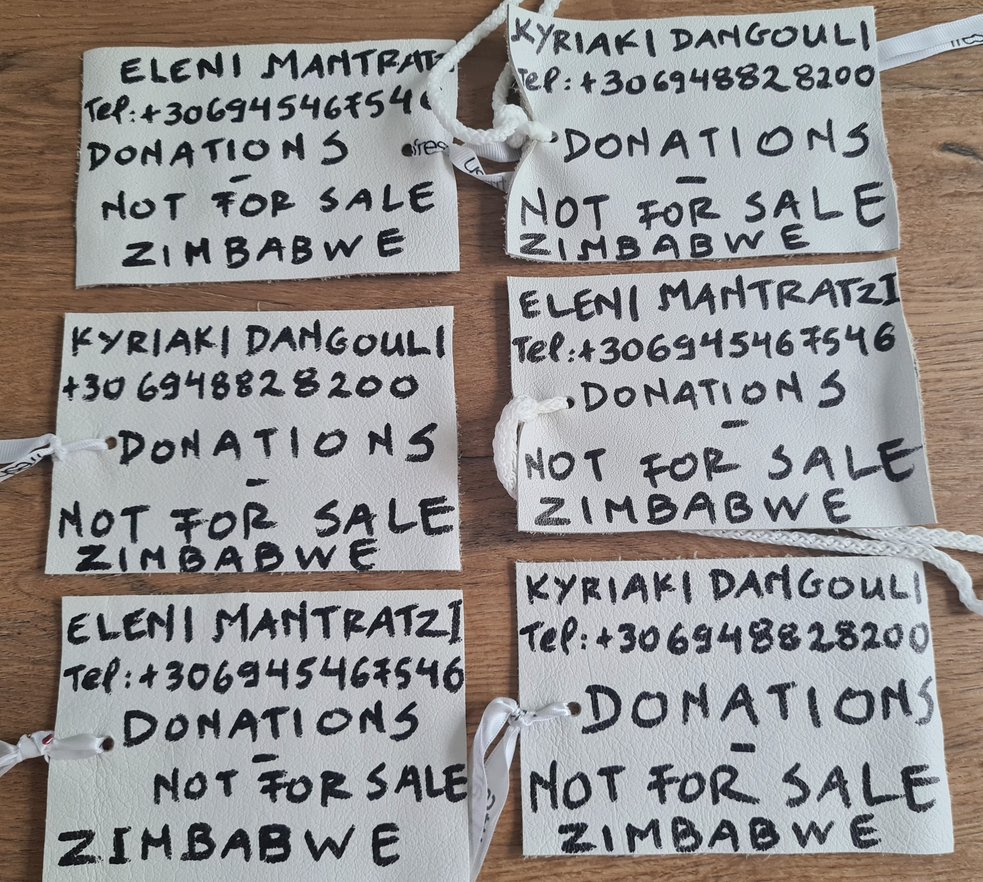 ELENI MANTRATZ
Tel:+306945467546
DONATIONS
-
NOT FOR SALE
ZIMBABWE
KYRIAKI DANGOULI
Tel:+306948828200
DONATIONS
-
NOT FOR SALE
ZIMBABWE
KYRIAKI DANGOULI
+30 6948828200
DONATIONS
-
NOT FOR SALE
ZIMBABWE
ELENI MANTRATZI
Tel:+306945467546
DONATIONS
-
NOT FOR SALE
ZIMBABWE
ELENI MANTRATZI
Tel:+306945467546
DONATIONS
-
NOT FOR SALE
ZIMBABWE
KYRIAKI DANGOULI
Tel:+306948828200
DONATIONS
-
NOT FOR SALE
ZIMBABWE